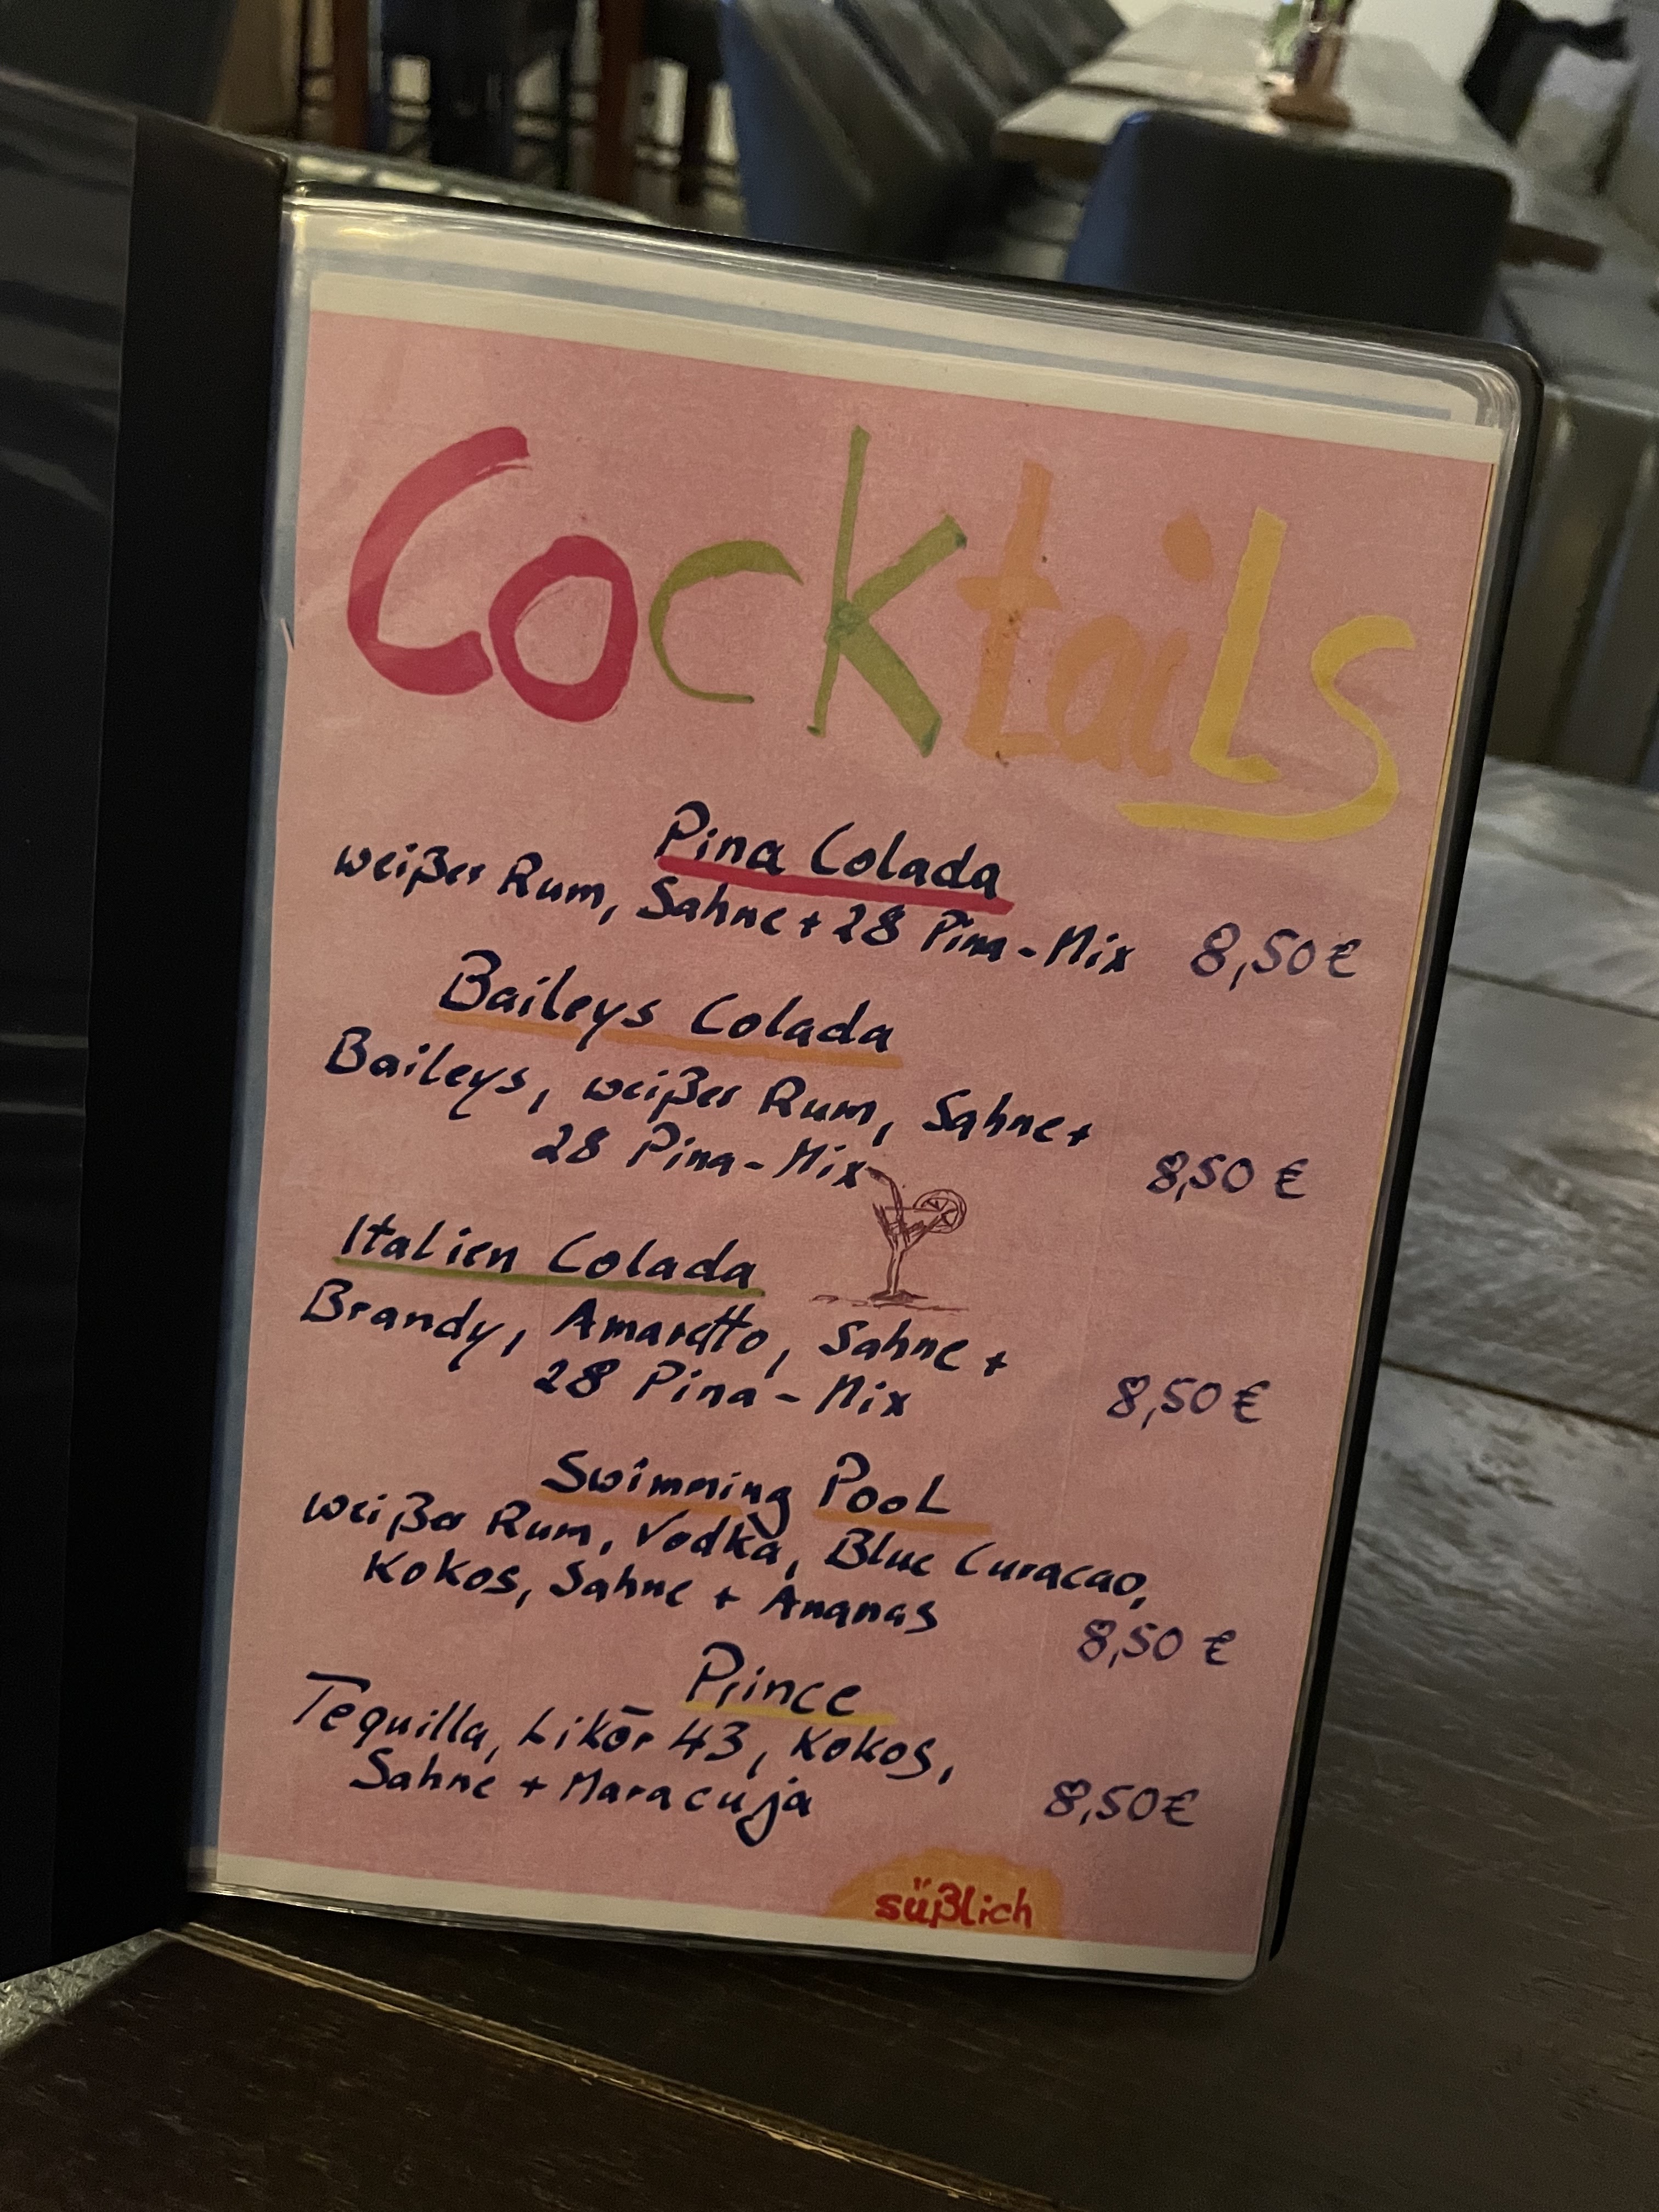 Cocktails
Pina Colada
weißer Rum, Sahne + 28 Pina-Mix 8,50 €
Baileys Colada
Baileys, weißer Rum, Sahne +
28 Pina-Mix 8,50 €
Italien Colada
Brandy, Amaretto, Sahne +
28 Pina-Mix 8,50 €
Swimming Pool
weißer Rum, Vodka, Blue Curacao,
Kokos, Sahne + Ananas 8,50 €
Prince
Tequilla, Likör 43, Kokos,
Sahne + Maracuja 8,50 €
süßlich